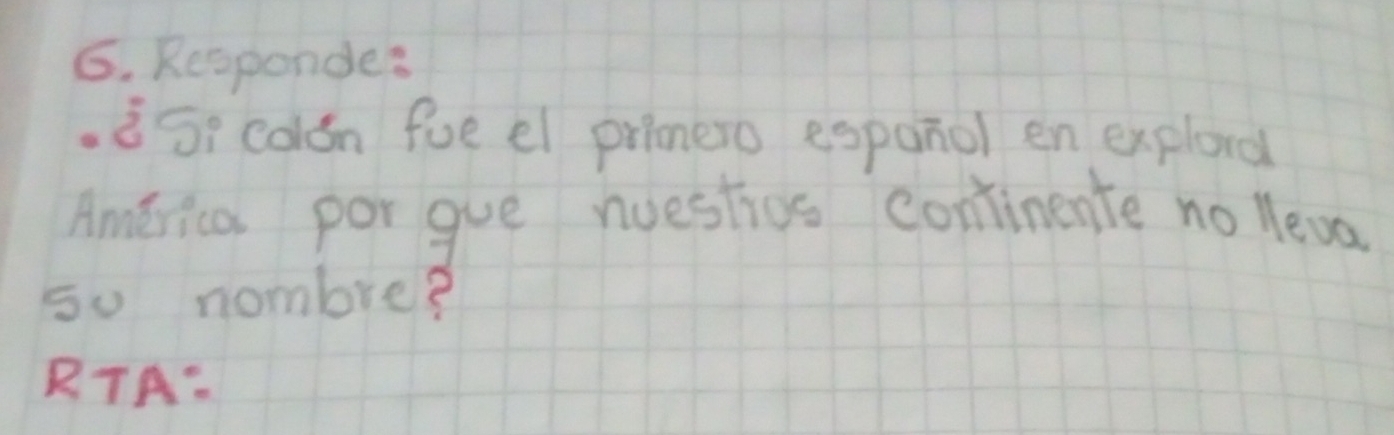 6. Responde:
.¿Si colón fue el primero español en explord
América por que nuestros continente no lleva
su nombre?
RTA: